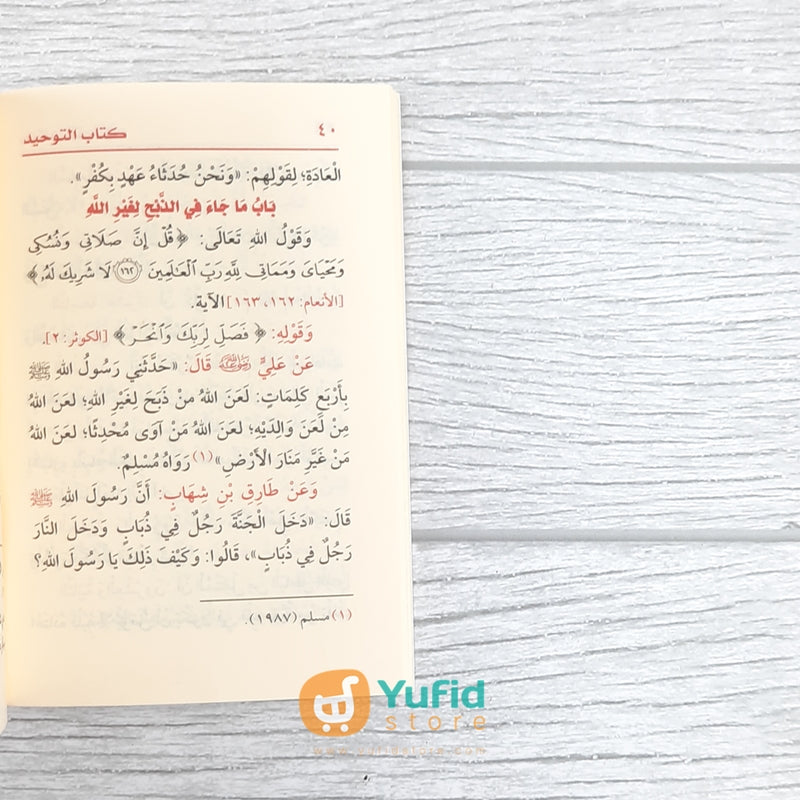 ٤٠ كتاب التوحيد
الْعَادَةِ؛ لِقَوْلِهِمْ: «وَنَحْنُ حُدَثَاءُ عَهْدٍ بِكُفْرٍ».
بَابُ مَا جَاءَ فِي الذَّبْحِ لِغَيْرِ اللَّهِ
وَقَوْلُ اللهِ تَعَالَى: ﴿قُلْ إِنَّ صَلَاتِي وَنُسُكِي
وَمَحْيَايَ وَمَمَاتِي لِلَّهِ رَبِّ الْعَالَمِينَ ١٦٢ لَا شَرِيكَ لَهُ﴾
[الأنعام: ١٦٢، ١٦٣] الآية.
وَقَوْلِهِ: ﴿فَصَلِّ لِرَبِّكَ وَانْحَرْ﴾ [الكوثر: ٢].
عَنْ عَلِيٍّ رضي الله عنه قَالَ: «حَدَّثَنِي رَسُولُ اللهِ ﷺ
بِأَرْبَعِ كَلِمَاتٍ: لَعَنَ اللهُ مَنْ ذَبَحَ لِغَيْرِ اللهِ؛ لَعَنَ اللهُ
مَنْ لَعَنَ وَالِدَيْهِ؛ لَعَنَ اللهُ مَنْ آوَى مُحْدِثًا؛ لَعَنَ اللهُ
مَنْ غَيَّرَ مَنَارَ الْأَرْضِ»(١) رَوَاهُ مُسْلِمٌ.
وَعَنْ طَارِقِ بْنِ شِهَابٍ: أَنَّ رَسُولَ اللهِ ﷺ
قَالَ: «دَخَلَ الْجَنَّةَ رَجُلٌ فِي ذُبَابٍ وَدَخَلَ النَّارَ
رَجُلٌ فِي ذُبَابٍ»، قَالُوا: وَكَيْفَ ذَلِكَ يَا رَسُولَ اللهِ؟
(١) مسلم (١٩٨٧).
Yufid
store
www.yufidstore.com